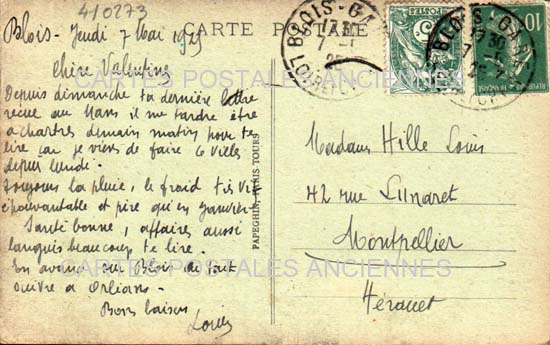 410273
CARTE POSTALE
Blois - Jeudi 7 Mai 1925
Chère Valentine
Depuis dimanche ta dernière lettre
reçue au Mans il me tarde être
à chartres demain matin pour te
lire car je viens de faire 6 villes
depuis lundi -
Toujours la pluie, le froid très vif
épouvantable et pire qu'en Janvier -
Santé bonne, affaires aussi
languis beaucoup te lire.
En avance sur Blois de tout
suivre à Orléans -
Bons baisers
Louis
PAPEGHIN, PARIS-TOURS
BLOIS-GARE
LOIR-ET-CHER
BLOIS-GARE
10
Madame Hille Louis
42 rue Lunaret
Montpellier
Hérault
CARTES POSTALES ANCIENNES
CARTES POSTALES ANCIENNES